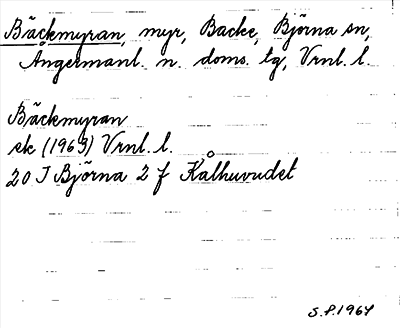 Bäckmyran, myr, Backe, Björna sn,
Ångermanl. n. doms. tg, Vrnl. l.
Bäckmyran
ek (1963) Vrnl. l.
20 J Björna 2 f Kålhuvudet
S.P. 1964